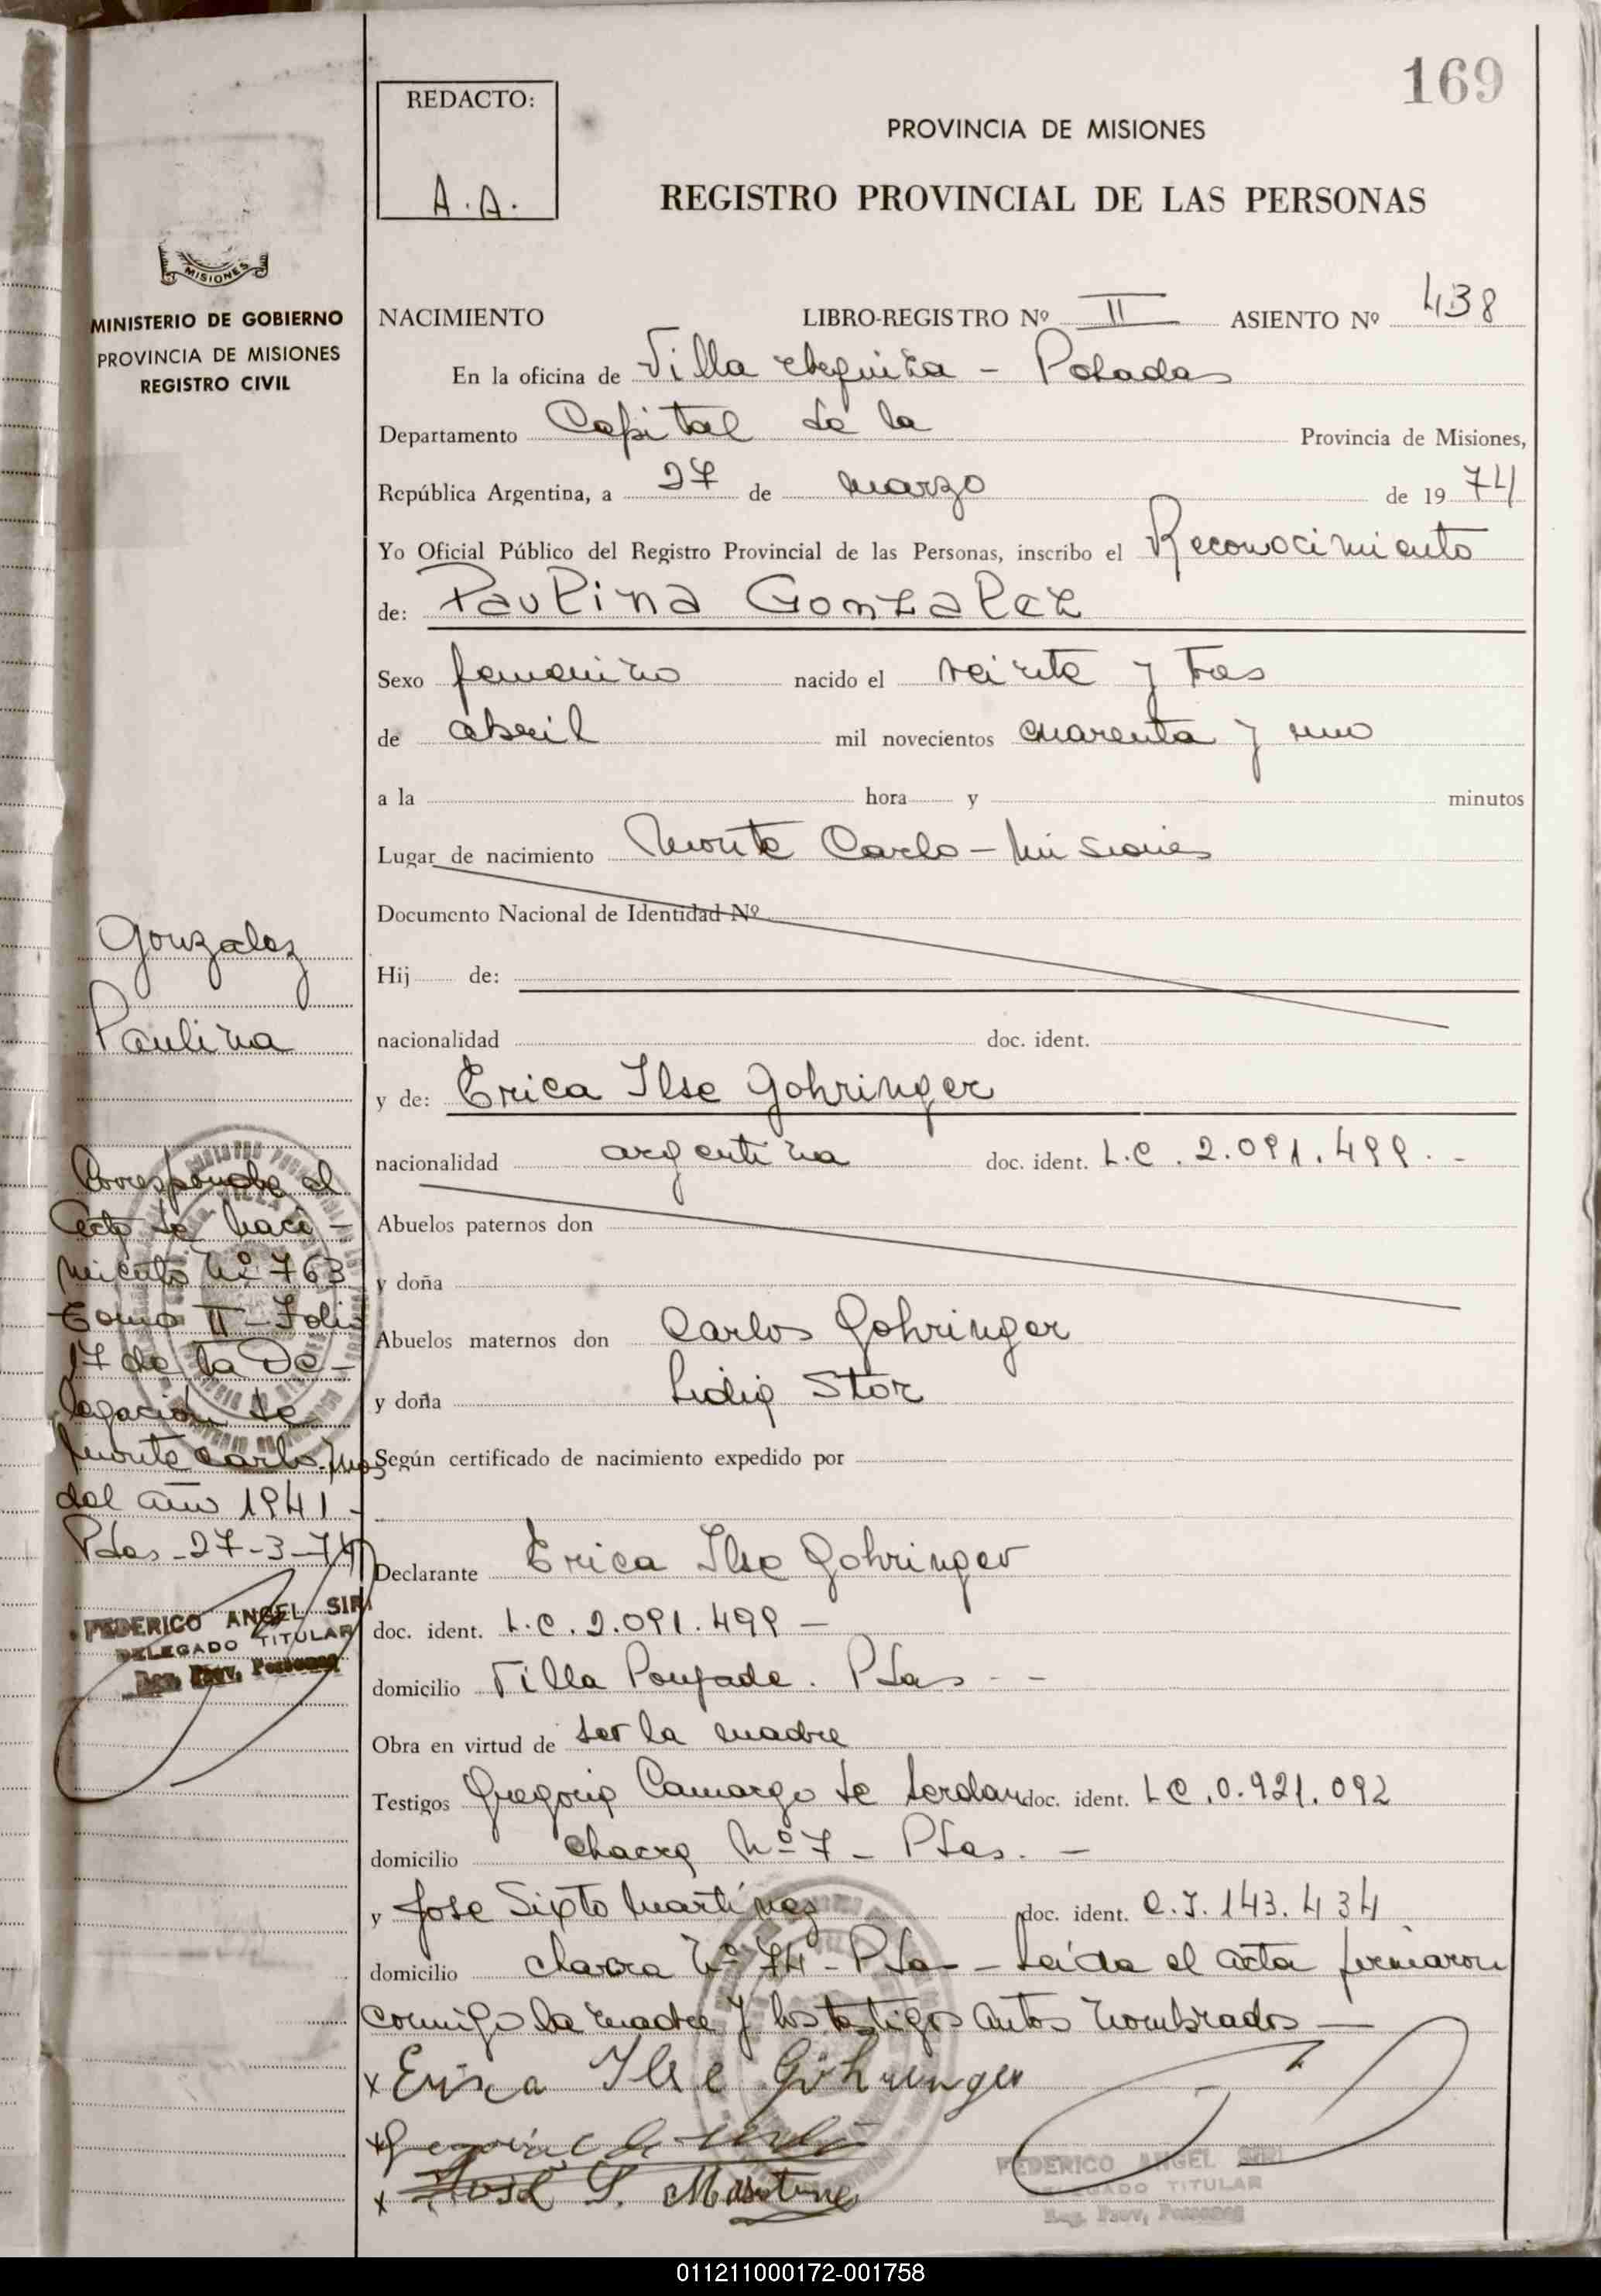 169
REDACTO:
A.A.
PROVINCIA DE MISIONES
REGISTRO PROVINCIAL DE LAS PERSONAS
MISIONES
MINISTERIO DE GOBIERNO
PROVINCIA DE MISIONES
REGISTRO CIVIL
NACIMIENTO LIBRO-REGISTRO Nº II ASIENTO Nº 438
En la oficina de Villa - Posadas
Departamento Capital de la Provincia de Misiones,
República Argentina, a 27 de marzo de 1974
Yo Oficial Público del Registro Provincial de las Personas, inscribo el Reconocimiento
de: Paulina Gonzalez
Sexo femenino nacido el veinte y tres
de abril mil novecientos cuarenta y uno
a la hora y minutos
Lugar de nacimiento Monte Carlo - Misiones
Documento Nacional de Identidad Nº
Hij de:
nacionalidad doc. ident.
y de: Erica Ilse Gohringer
nacionalidad argentina doc. ident. L.C. 2.091.499.-
Abuelos paternos don
y doña
Abuelos maternos don Carlos Gohringer
y doña Lidia Stor
Según certificado de nacimiento expedido por
Declarante Erica Ilse Gohringer
doc. ident. L.C. 2.091.499 -
domicilio Villa Poujade. Pdas - -
Obra en virtud de ser la madre
Testigos Gregoria Camargo de doc. ident. L.C. 0.921.092
domicilio chacra Nº 7 - Pdas. -
y Jose Sixto Martínez doc. ident. C.I. 143.434
domicilio chacra Nº 74 - Pdas - Leída el acta firmaron
conmigo la madre y los testigos antes nombrados -
x Erica Ilse Göhringer
x
x José S. Martinez
FEDERICO ANGEL SIRI
DELEGADO TITULAR
Reg. Prov. Personas
Gonzalez
Paulina
Corresponde al
Acta de Naci-
miento Nº 763
Tomo II - Folio
17 de la De-
legación de
Monte Carlo-Mnes
del año 1941 -
Pdas - 27-3-74
FEDERICO ANGEL SIRI
DELEGADO TITULAR
Reg. Prov. Personas
011211000172-001758